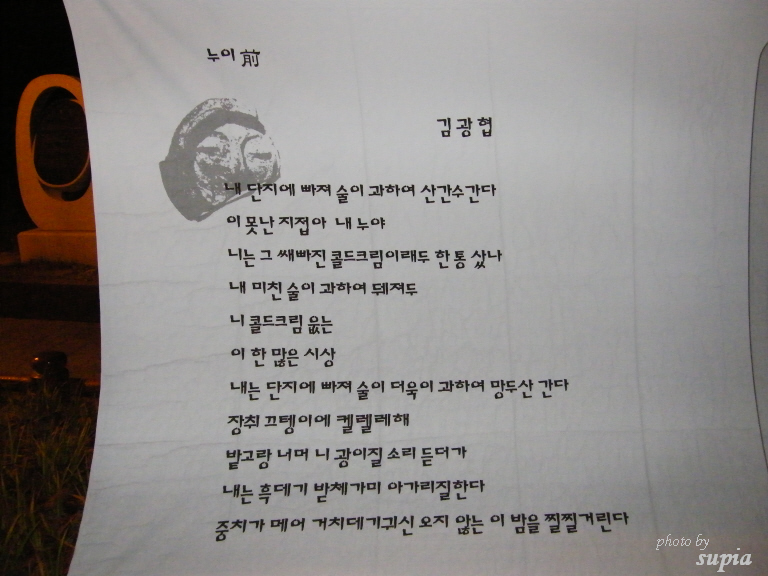 누이 前
김광협
내 단지에 빠져 술이 과하여 산간수간다
이 못난 지접아 내 누야
니는 그 쌔빠진 콜드크림이래두 한 통 샀나
내 미친 술이 과하여 뒈져두
니 콜드크림 읎는
이 한 많은 시상
내는 단지에 빠져 술이 더욱이 과하여 망두산 간다
장취 끄텡이에 켈렐레해
밭고랑 너머 니 광이질 소리 듣더가
내는 흑데기 받체가미 아가리질한다
중치가 메어 거치데기귀신 오지 않는 이 밤을 찔찔거린다
photo by
supia